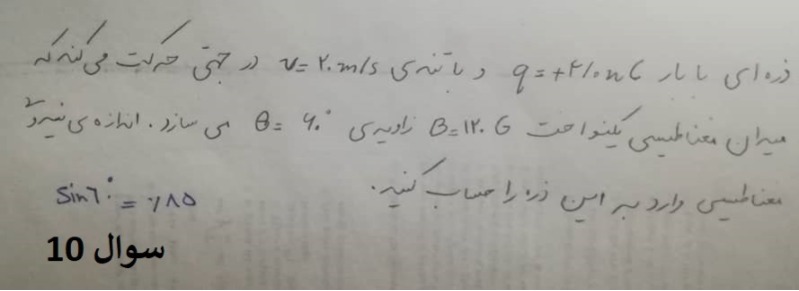 ذره‌ای با بار q = +۴/۰ nC و با تندی v = ۲۰ m/s در جهتی حرکت می‌کند که
میدان مغناطیسی یکنواخت B = ۱۲۰ G زاویه‌ی θ = ۶۰° می سازد. اندازه‌ی نیروی
مغناطیسی وارد بر این ذره را حساب کنید.
Sin ۶۰° = ۰/۸۵
سوال 10